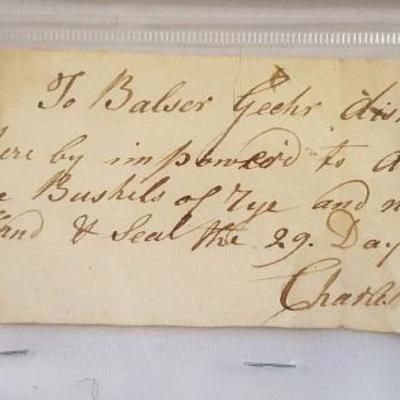 To Balser Geehr dis
here by impower'd to d
e Bushels of rye and n
Hand & Seal the 29. Day
Charles